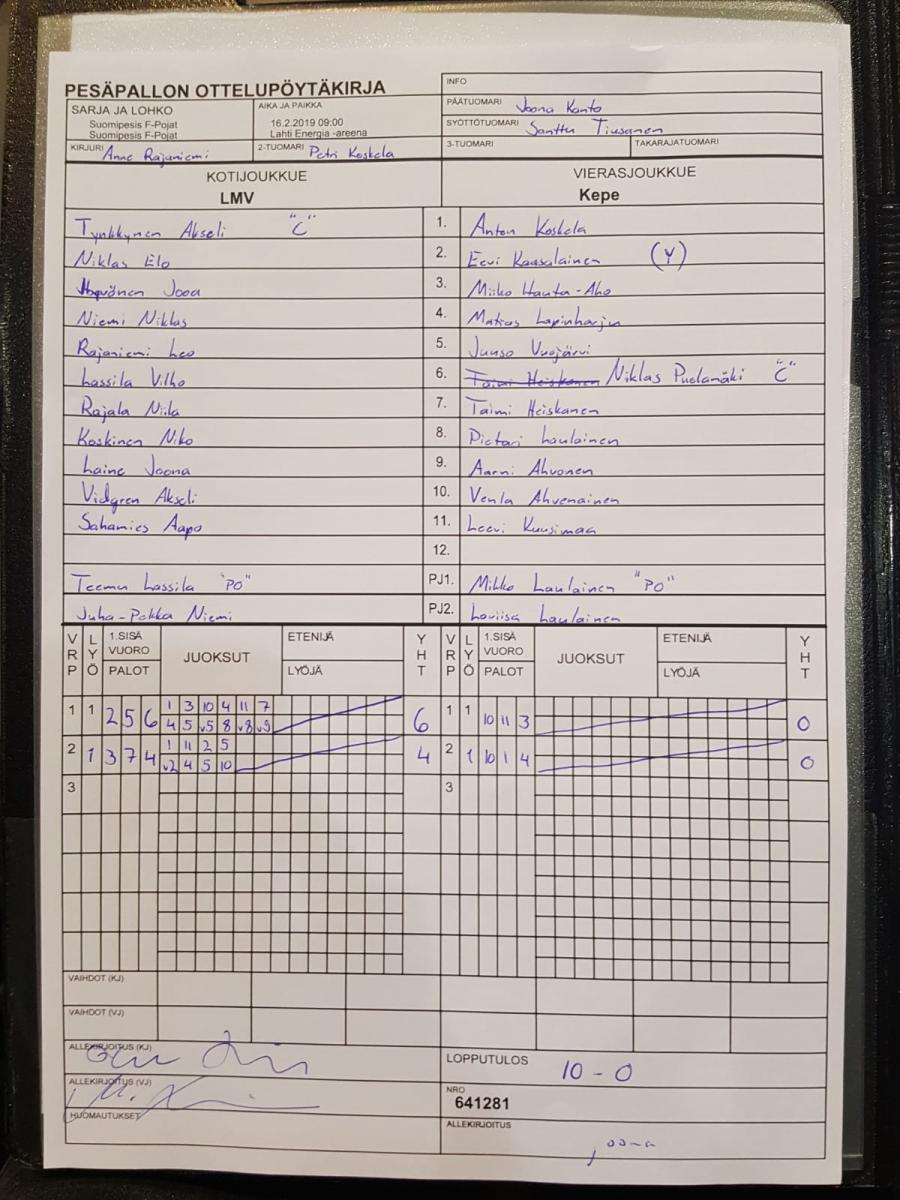 PESÄPALLON OTTELUPÖYTÄKIRJA
INFO
SARJA JA LOHKO
Suomipesis F-Pojat
Suomipesis F-Pojat
AIKA JA PAIKKA
16.2.2019 09:00
Lahti Energia -areena
PÄÄTUOMARI Joona Kanto
SYÖTTÖTUOMARI Santtu Tiusanen
KIRJURI Anne Rajaniemi
2-TUOMARI Petri Koskela
3-TUOMARI
TAKARAJATUOMARI
KOTIJOUKKUE
LMV
VIERASJOUKKUE
Kepe
Tynkkynen Akseli "C" 1. Anton Koskela
Niklas Elo 2. Eevi Kaasalainen (Y)
Jooa 3. Miiko Hauta-Aho
Niemi Niklas 4. Matias Lapinharju
Rajaniemi Leo 5. Juuso Vuojärvi
Lassila Vilho 6. Taimi Heiskanen Niklas Puolamäki "C"
Rajala Niila 7. Taimi Heiskanen
Koskinen Niko 8. Pietari Laulainen
Laine Joona 9. Aarni Ahvonen
Vidgren Akseli 10. Venla Ahvenainen
Sahamies Aapo 11. Leevi Kuusimaa
12.
Teemu Lassila "PO" PJ1. Mikko Laulainen "PO"
Juha-Pekka Niemi PJ2. Loviisa Laulainen
VRP LYÖ 1.SISÄ VUORO PALOT JUOKSUT ETENIJÄ LYÖJÄ YHT VRP LYÖ 1.SISÄ VUORO PALOT JUOKSUT ETENIJÄ LYÖJÄ YHT
1 1 2 5 6 1 3 10 4 11 7 6 1 1 10 11 3 0
4 5 v5 8 v8 v9
2 1 3 7 4 1 11 2 5 4 2 1 10 1 4 0
v2 4 5 10
3 3
VAIHDOT (KJ)
VAIHDOT (VJ)
ALLEKIRJOITUS (KJ)
LOPPUTULOS
10 - 0
ALLEKIRJOITUS (VJ)
NRO
641281
HUOMAUTUKSET
ALLEKIRJOITUS